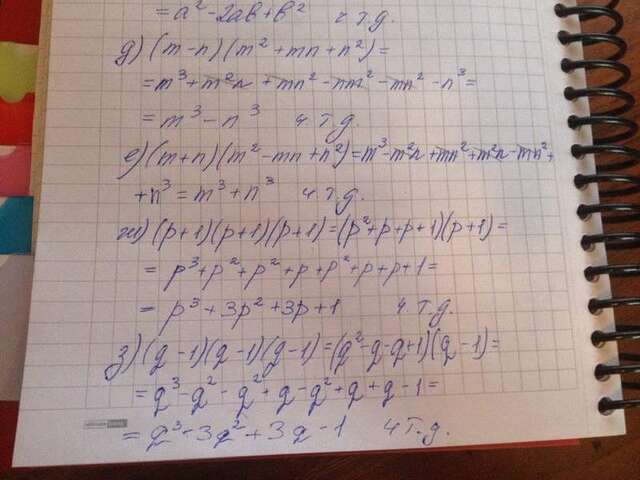 = a² - 2ab + b² ч.т.д.
д) (m-n)(m²+mn+n²)=
= m³ + m²n + mn² - nm² - mn² - n³ =
= m³ - n³ ч.т.д.
е) (m+n)(m²-mn+n²)=m³-m²n+mn²+m²n-mn²+
+n³ = m³+n³ ч.т.д.
ж) (p+1)(p+1)(p+1)=(p²+p+p+1)(p+1)=
= p³+p²+p²+p+p²+p+p+1=
= p³+3p²+3p+1 ч.т.д.
з) (q-1)(q-1)(q-1)=(q²-q-q+1)(q-1)=
= q³-q²-q²+q-q²+q+q-1=
= q³-3q²+3q-1 ч.т.д.